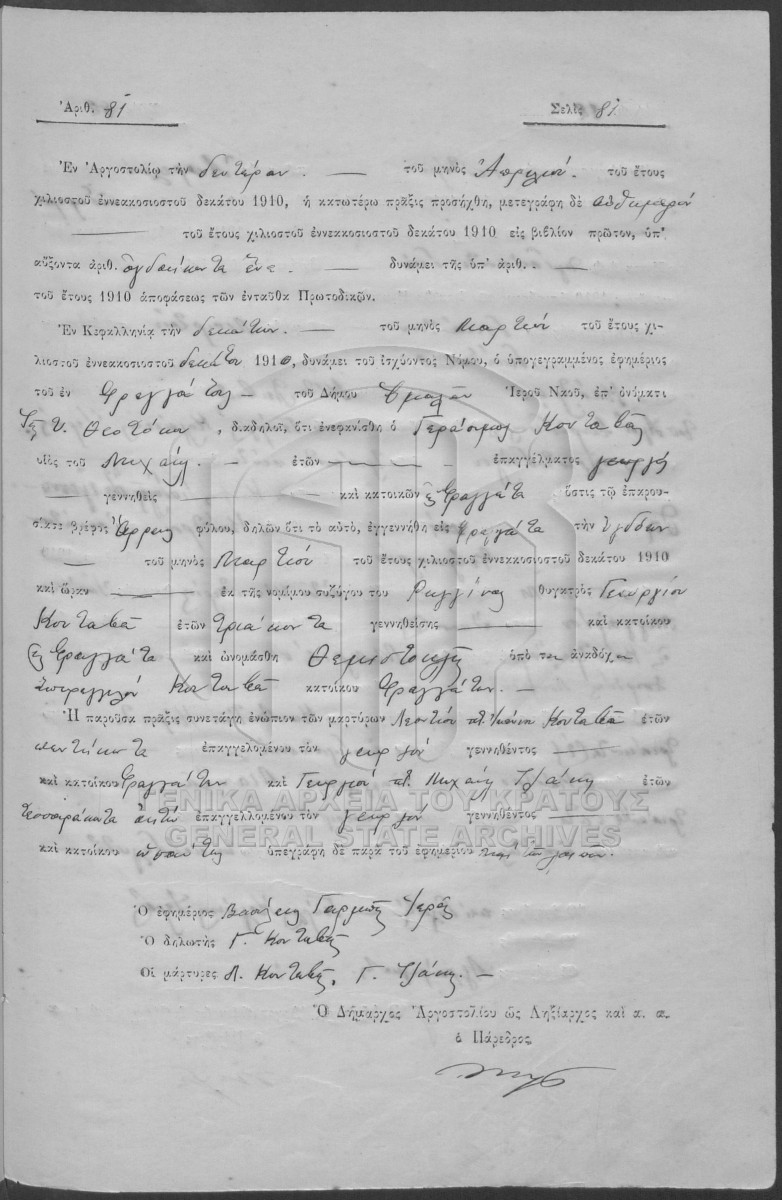 Ἀριθ. 81 Σελὶς 81
Ἐν Ἀργοστολίῳ τὴν δευτέραν. — τοῦ μηνὸς Ἀπριλίου. τοῦ ἔτους
χιλιοστοῦ ἐννεακοσιοστοῦ δεκάτου 1910, ἡ κατωτέρω πρᾶξις προσήχθη, μετεγράφη δὲ αὐθημερόν
— τοῦ ἔτους χιλιοστοῦ ἐννεακοσιοστοῦ δεκάτου 1910 εἰς βιβλίον πρῶτον, ὑπ'
αὔξοντα ἀριθ. ὀγδοήκοντα ἕνα. — δυνάμει τῆς ὑπ' ἀριθ. —
τοῦ ἔτους 1910 ἀποφάσεως τῶν ἐνταῦθα Πρωτοδικῶν.
Ἐν Κεφαλληνίᾳ τὴν δεκάτην. — τοῦ μηνὸς Μαρτίου τοῦ ἔτους χι-
λιοστοῦ ἐννεακοσιοστοῦ δεκάτου 1910, δυνάμει τοῦ ἰσχύοντος Νόμου, ὁ ὑπογεγραμμένος ἐφημέριος
τοῦ ἐν Φραγγάτοις — τοῦ Δήμου Ὁμαλῶν Ἱεροῦ Ναοῦ, ἐπ' ὀνόματι
Τῆς Υ. Θεοτόκου, δηλοῖ, ὅτι ἐνεφανίσθη ὁ Γεράσιμος Κονταβᾶς
υἱὸς τοῦ Μιχαήλ. — ἐτῶν — ἐπαγγέλματος γεωργὸς
— γεννηθεὶς — καὶ κατοικῶν Φραγγάτα ὅστις τῷ ἐπαρου-
σίασε βρέφος ἄρρεν φύλου, δηλῶν ὅτι τὸ αὐτὸ, ἐγεννήθη εἰς Φραγγάτα τὴν ὀγδόην
— τοῦ μηνὸς Μαρτίου τοῦ ἔτους χιλιοστοῦ ἐννεακοσιοστοῦ δεκάτου 1910
καὶ ὥραν — ἐκ τῆς νομίμου συζύγου του Ρεγγίνας θυγατρὸς Γεωργίου
Κονταβᾶ ἐτῶν τριάκοντα γεννηθείσης — καὶ κατοίκου
Φραγγάτα καὶ ὠνομάσθη Θεμιστοκλῆς ὑπὸ του ἀναδόχου
Σπυραγγέλου Κονταβᾶ κατοίκου Φραγγάτων. —
Ἡ παροῦσα πρᾶξις συνετάγη ἐνώπιον τῶν μαρτύρων Λεοντίου Κονταβᾶ ἐτῶν
πεντήκοντα ἐπαγγελομένου τὸν γεωργόν γεννηθέντος —
καὶ κατοίκου Φραγγάτων καὶ Γεωργίου Μιχαὴλ Τζάκη ἐτῶν
τεσσαράκοντα ὀκτώ ἐπαγγελλομένου τὸν γεωργόν γεννηθέντος —
ΓΕΝΙΚΑ ΑΡΧΕΙΑ ΤΟΥ ΚΡΑΤΟΥΣ
GENERAL STATE ARCHIVES
καὶ κατοίκου ὑπεγράφη δὲ παρὰ τοῦ ἐφημερίου
Ὁ ἐφημέριος Βασίλειος Γαρμπῆς Ἱερεύς
Ὁ δηλωτὴς Γ. Κονταβᾶς
Οἱ μάρτυρες Λ. Κονταβᾶς, Γ. Τζάκης. —
Ὁ Δήμαρχος Ἀργοστολίου ὡς Ληξίαρχος καὶ α. α.
ὁ Πάρεδρος